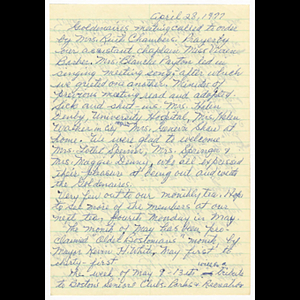 April 28, 1977
Goldenaires meeting called to order
by Mrs. Ruth Chambers. Prayer by
our assistant chaplain Miss Vivien
Barber. Mrs. Blanche Payton led in
singing meeting song, after which
we greeted one another. Minutes of
previous meeting read and adopted.
Sick and shut-ins Mrs. Helen
University Hospital, Mrs. Helen
Mrs. Laura Shaw at
home. We were glad to welcome
Mrs. Lotus Skinner, Mrs. Springer &
Mrs. Maggie Denny, who all expressed
their pleasure at being out and with
the Goldenaires.
Very few out to our monthly tea. Hope
to see more of the members at our
next tea, fourth Monday in May.
The month of May has been "pro-
claimed Older Bostonians" month, by
Mayor Kevin H. White, May first -
thirty-first.
The week of May 9-13th is tribute
to Boston Seniors Clubs, Parks & Recreation